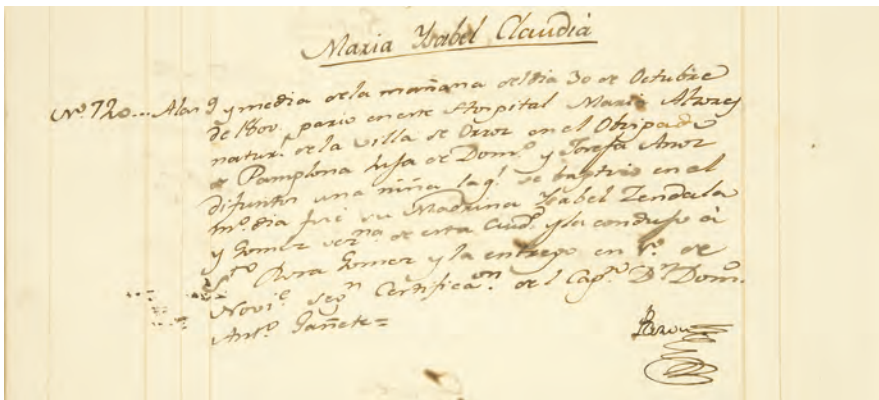 Maria Ysabel Claudia
Nº 720... Alas 9 y media dela mañana del dia 30 de Octubre
de 1800. pario en este Hospital Maria
natur.l dela villa de en el Obispado
de Pamplona hija de Dom.º y Josefa
difuntos una niña laq.l se baptizo en el
m.º dia fue su Madrina Ysabel Zendala
y Gomez vez.na de esta Ciud.d y la conduxo à
S.to Rosa Gomez y la entrego en 1.º de
Novi.e seg.n Certifica.on del Cap.n D.n Dom.º
Ant.º Gañete=